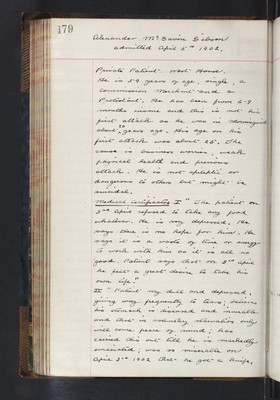 179
Alexander Mc Gavin Gibson
admitted April 5th 1902.
Private Patient. West House.
He is 59 years of age, single, a
Commission Merchant and a
Protestant. He has been from 6-9
months insane and this is not his
first attack as he was in Morningside
about 20 years ago. His age on his
first attack was about 25. The
cause is business worries, weak
physical health and previous
attack. He is not epileptic or
dangerous to others but might be
suicidal.
Medical Certificates I " The patient on
3rd April refused to take any food
whatever. He is very depressed. He
says there is no hope for him. He
says it is a waste of time or energy
to work with him as it is all no
good. Patient says that on 2nd April
he felt a great desire to take his
own life."
II " Patient very dull and depressed,
giving way frequently to tears; believes
his stomach is diseased and miserable
and that in voluntary starvation only
will come peace of mind; has
carried this out till he is markedly
emaciated; was so miserable on
April 2nd 1902 that he got a knife,